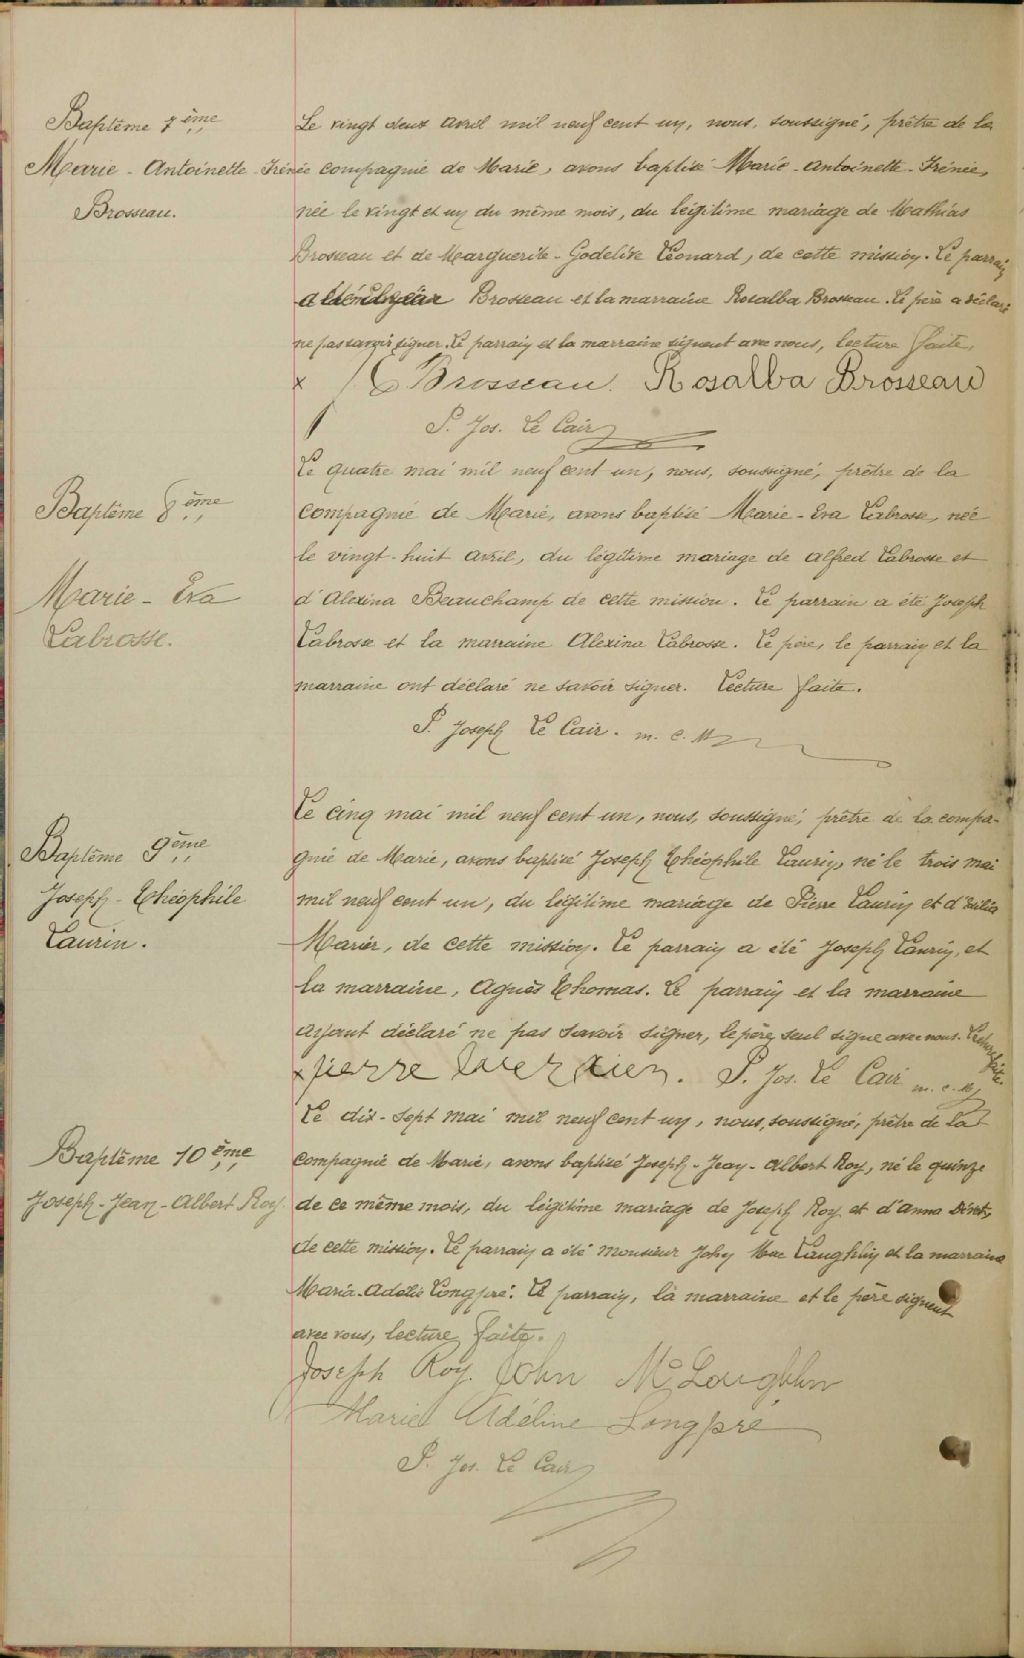 Baptême 7ème
Marie - Antoinette - Irénée
Brosseau.
Le vingt deux avril mil neuf cent un, nous, soussigné, prêtre de la
compagnie de Marie, avons baptisé Marie - Antoinette - Irénée,
née le vingt et un du même mois, du légitime mariage de Mathias
Brosseau et de Marguerite - Godelive Léonard, de cette mission. Le parrain
a été Brosseau et la marraine Rosalba Brosseau. Le père a déclaré
ne pas savoir signer. Le parrain et la marraine signent avec nous, lecture faite,
x Brosseau. Rosalba Brosseau
P. Jos. Le Cair
Baptême 8ème
Marie - Eva
Labrosse.
Le quatre mai mil neuf cent un, nous, soussigné, prêtre de la
compagnie de Marie, avons baptisé Marie - Eva Labrosse, née
le vingt - huit avril, du légitime mariage de Alfred Labrosse et
d'Alexina Beauchamp de cette mission. Le parrain a été Joseph
Labrosse et la marraine Alexina Labrosse. Le père, le parrain et la
marraine ont déclaré ne savoir signer. Lecture faite.
P. Joseph Le Cair. m. c. M
Baptême 9ème
Joseph - Théophile
Laurin.
Le cinq mai mil neuf cent un, nous, soussigné, prêtre de la compa-
gnie de Marie, avons baptisé Joseph Théophile Laurin, né le trois mai
mil neuf cent un, du légitime mariage de Pierre Laurin et d'
Marier, de cette mission. Le parrain a été Joseph Laurin, et
la marraine, Agnès Thomas. Le parrain et la marraine
ayant déclaré ne pas savoir signer, le père seul signe avec nous. Lecture faite.
x pierre P. Jos. Le Cair m. c. M
Baptême 10ème
Joseph - Jean - Albert Roy.
Le dix - sept mai mil neuf cent un, nous, soussigné, prêtre de la
compagnie de Marie, avons baptisé Joseph - Jean - Albert Roy, né le quinze
de ce même mois, du légitime mariage de Joseph Roy et d'Anna
de cette mission. Le parrain a été Monsieur John Mac Laughlin et la marraine
Maria - Adélie Longpré. Le parrain, la marraine et le père signent
avec nous, lecture faite.
Joseph Roy. John Mc Loughlin
Marie Adéline Longpré
P. Jos. Le Cair